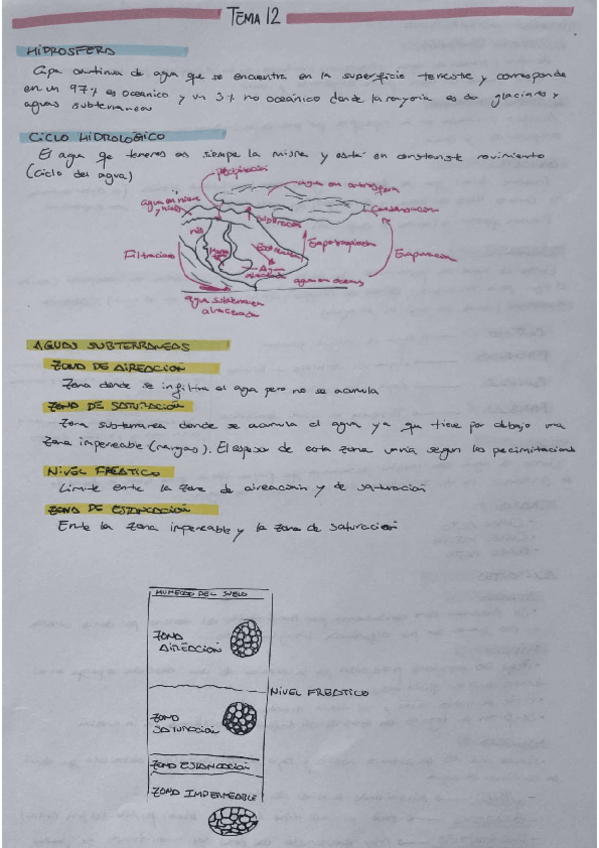 TEMA 12
HIDROSFERA
Capa continua de agua que se encuentra en la superficie terrestre y corresponde
en un 97% es oceanico y un 3% no oceánico donde la mayoria es de glaciares y
aguas subterraneas
CICLO HIDROLÓGICO
El agua qe tenemos es siempe la misma y está en constante movimiento
(ciclo del agua)
precipitacion
agua en atmosfera
agua en nieve
y hielo
Condensacion
sublimacion
rios
Filtracion
Escorrentia
Evapotranspiracion
Evaporacion
Agua
agua en oceanos
agua subterranea
almacenada
AGUAS SUBTERRANEAS
ZONA DE AIREACIÓN
Zona donde se infiltra el agua pero no se acumula
ZONA DE SATURACIÓN
Zona subterranea donde se acumula el agua ya que tiene por debajo una
zona impermeable (margas). El espesor de esta zona varía segun las precipitaciones
NIVEL FREATICO
Limite ente la zona de aireacion y de saturación
ZONA DE ESTANCACIÓN
Ente la zona impermeable y la zona de saturación
HUMEDAD DEL SUELO
ZONA
AIREACIÓN
NIVEL FREATICO
ZONA
SATURACIÓN
ZONA ESTANCACIÓN
ZONA IMPERMEABLE